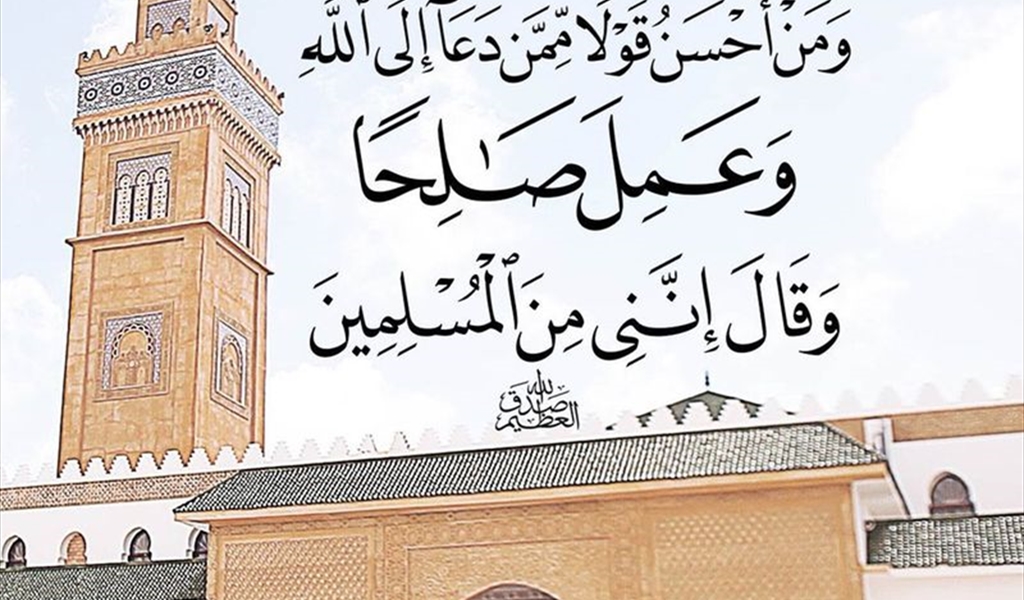 وَمَنْ أَحْسَنُ قَوْلًا مِّمَّن دَعَآ إِلَى ٱللَّهِ
وَعَمِلَ صَـٰلِحًا
وَقَالَ إِنَّنِى مِنَ ٱلْمُسْلِمِينَ
صدق الله العظيم